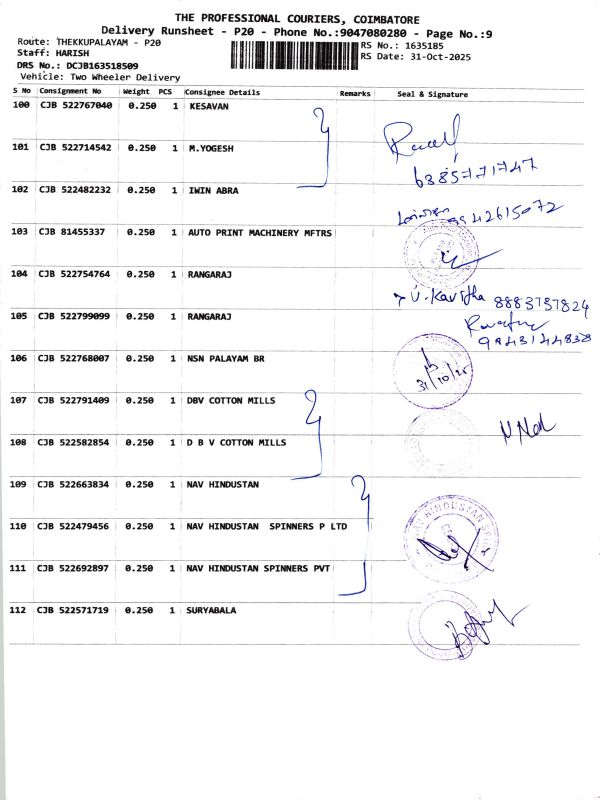 THE PROFESSIONAL COURIERS, COIMBATORE
Delivery Runsheet - P20 - Phone No.:9047080280 - Page No.:9
Route: THEKKUPALAYAM - P20
RS No.: 1635185
Staff: HARISH
RS Date: 31-Oct-2025
DRS No.: DCJB163518509
Vehicle: Two Wheeler Delivery
S No Consignment No Weight PCS Consignee Details Remarks Seal & Signature
100 CJB 522767040 0.250 1 KESAVAN
101 CJB 522714542 0.250 1 M.YOGESH
6385771747
102 CJB 522482232 0.250 1 IWIN ABRA
9942615072
103 CJB 81455337 0.250 1 AUTO PRINT MACHINERY MFTRS
104 CJB 522754764 0.250 1 RANGARAJ
U.Kavitha 8883737824
105 CJB 522799099 0.250 1 RANGARAJ
9943144838
106 CJB 522768007 0.250 1 NSN PALAYAM BR
31/10/25
107 CJB 522791409 0.250 1 DBV COTTON MILLS
108 CJB 522582854 0.250 1 D B V COTTON MILLS
109 CJB 522663834 0.250 1 NAV HINDUSTAN
110 CJB 522479456 0.250 1 NAV HINDUSTAN SPINNERS P LTD
HINDUSTAN
111 CJB 522692897 0.250 1 NAV HINDUSTAN SPINNERS PVT
112 CJB 522571719 0.250 1 SURYABALA